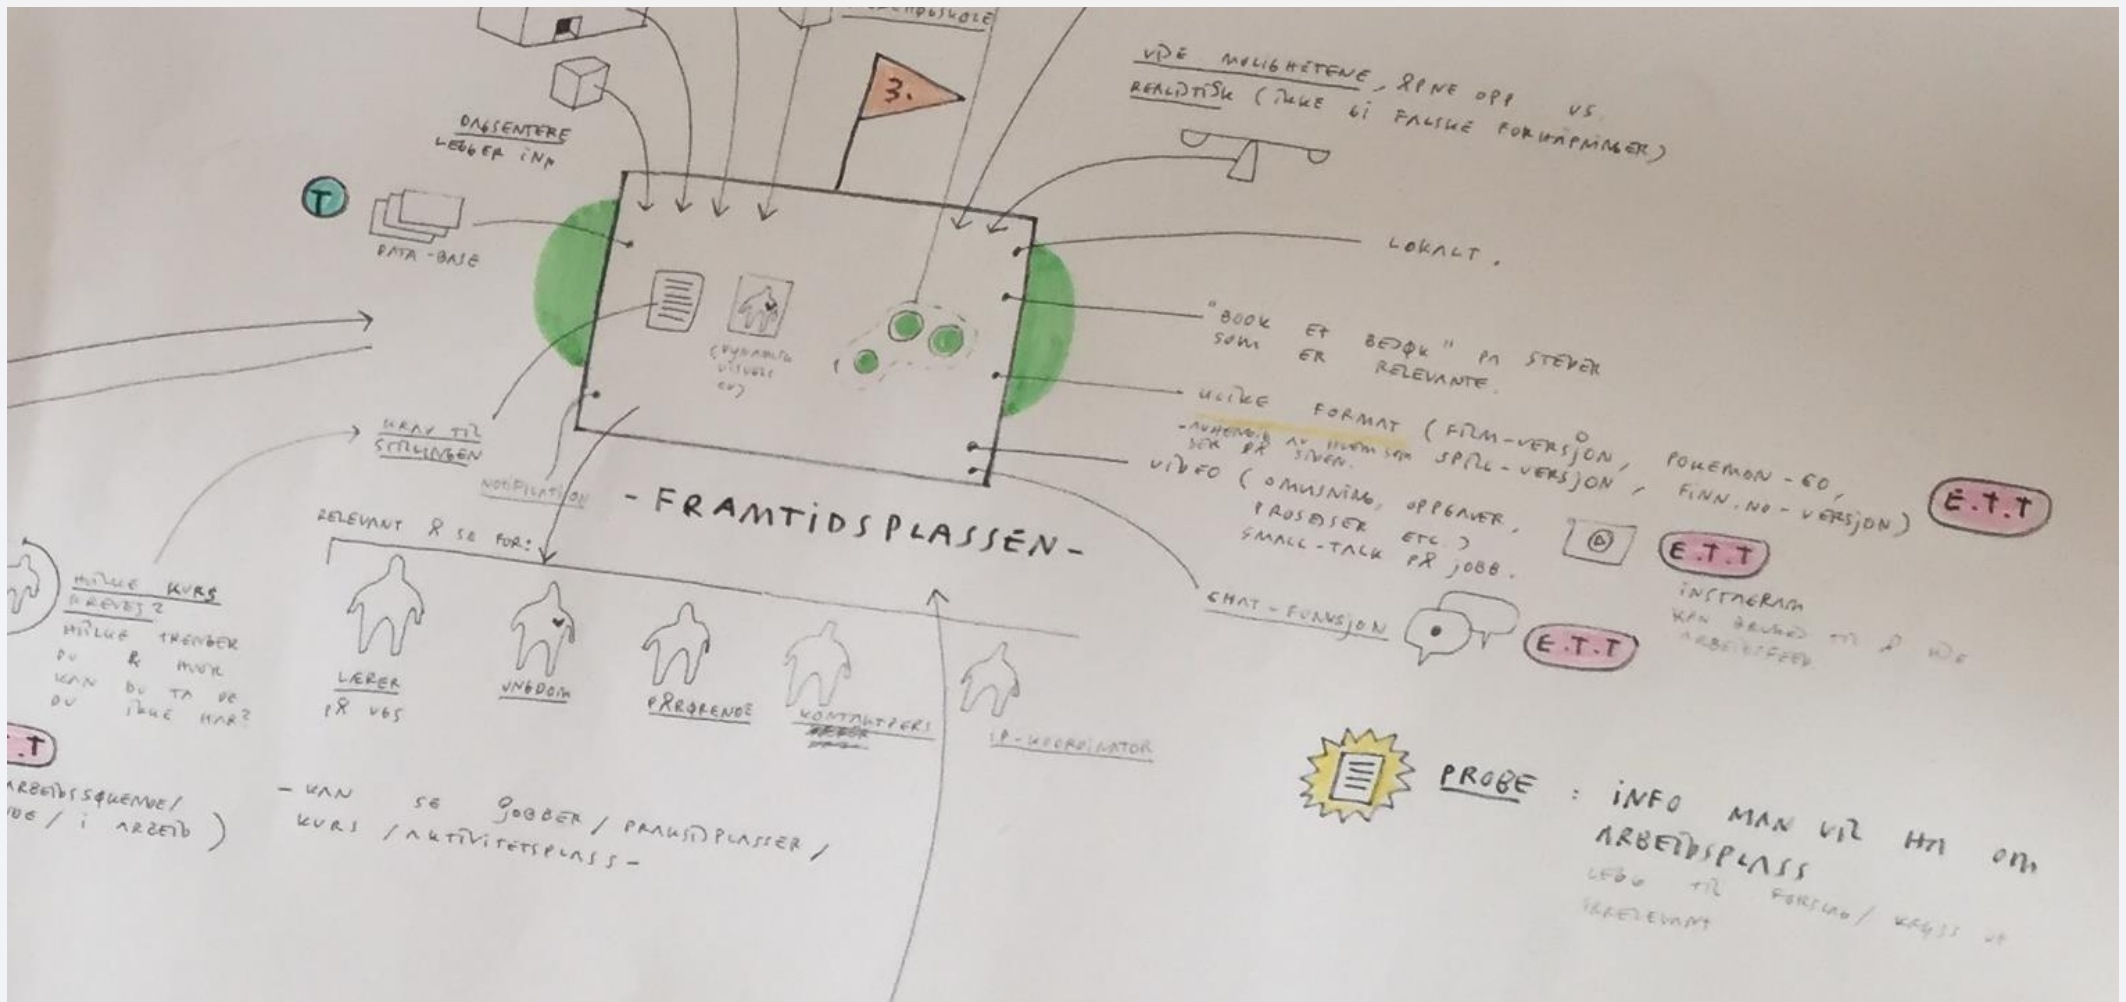 3.
VIDE MULIGHETENE, ÅPNE OPP VS.
REALISTISK (IKKE GI FALSKE FORHÅPNINGER)
DAGSENTERE
LEGGER INN
T
DATA-BASE
LOKALT.
"BOOK ET BESØK" PÅ STEDER
SOM ER RELEVANTE.
(DYNAMISK
VISUELL
CV)
ULIKE FORMAT (FILM-VERSJON, POKEMON-GO,
SPILL-VERSJON, FINN.NO-VERSJON)
-AVHENGIG AV HVEM SOM
SER PÅ SIDEN.
E.T.T
VIDEO (OMVISNING, OPPGAVER,
PROSESSER ETC.)
SMALL-TALK PÅ JOBB.
E.T.T
INSTAGRAM
KAN BRUKES TIL Å
ARBEIDSFEED
CHAT-FUNKSJON
E.T.T
KRAV TIL
STILLINGEN
NOTIFICATION
-FRAMTIDSPLASSEN-
RELEVANT Å SE FOR:
LÆRER
PÅ VGS
UNGDOM
PÅRØRENDE
KONTAKTPERS
IP-KOORDINATOR
HVILKE KURS
KREVES?
HVILKE TRENGER
DU & HVOR
KAN DU TA DE
DU IKKE HAR?
.T
ARBEIDSSØKENDE/
DE/ I ARBEID)
-KAN SE JOBBER/PRAKSISPLASSER/
KURS/AKTIVITETSPLASS-
PROBE: INFO MAN VIL HA OM
ARBEIDSPLASS
LEGG TIL FORSLAG/ KRYSS UT
IRRELEVANT